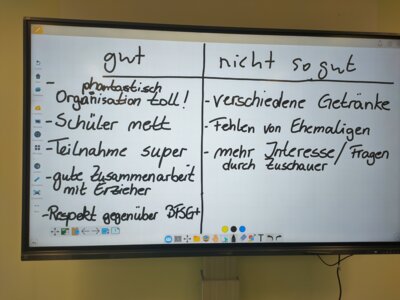 gut
nicht so gut
- phantastisch
Organisation toll!
- Schüler nett
- Teilnahme super
- gute Zusammenarbeit
mit Erzieher
- Respekt gegenüber BFSG+
- verschiedene Getränke
- Fehlen von Ehemaligen
- mehr Interesse/Fragen
durch Zuschauer